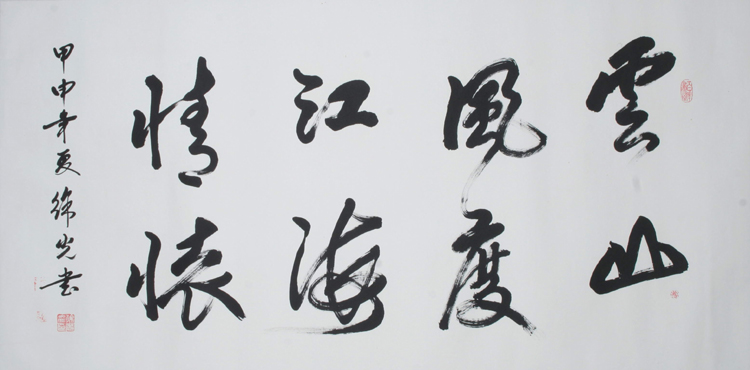 雲山
風度
江海
情懷
甲申年夏徐光書